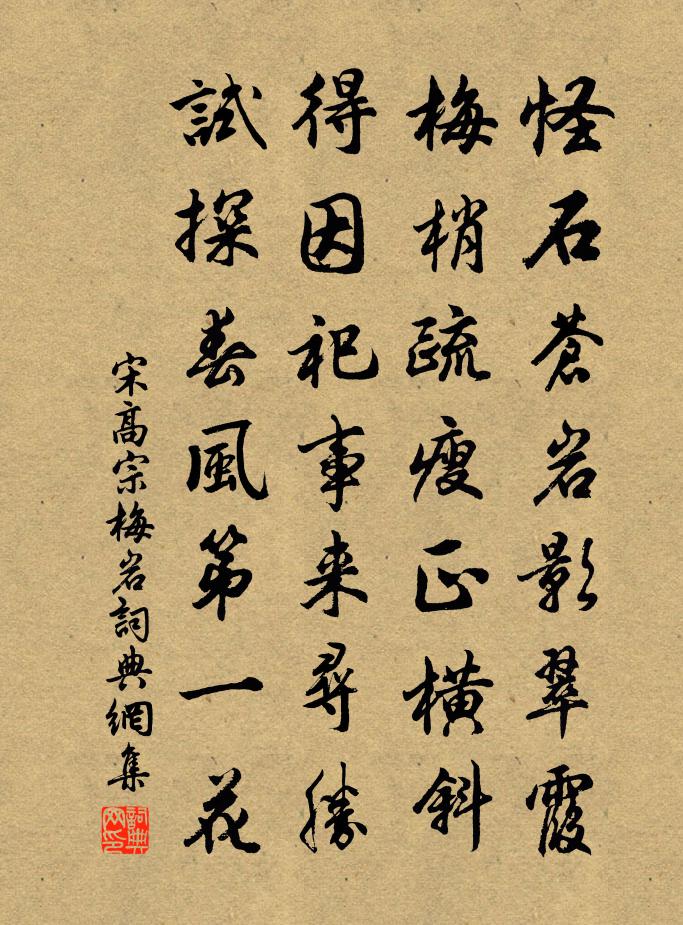 怪石蒼岩影翠霞
梅梢疏瘦正橫斜
得因祀事来尋勝
試探春風第一花
宋高宗梅岩詞典網集
詞典网印